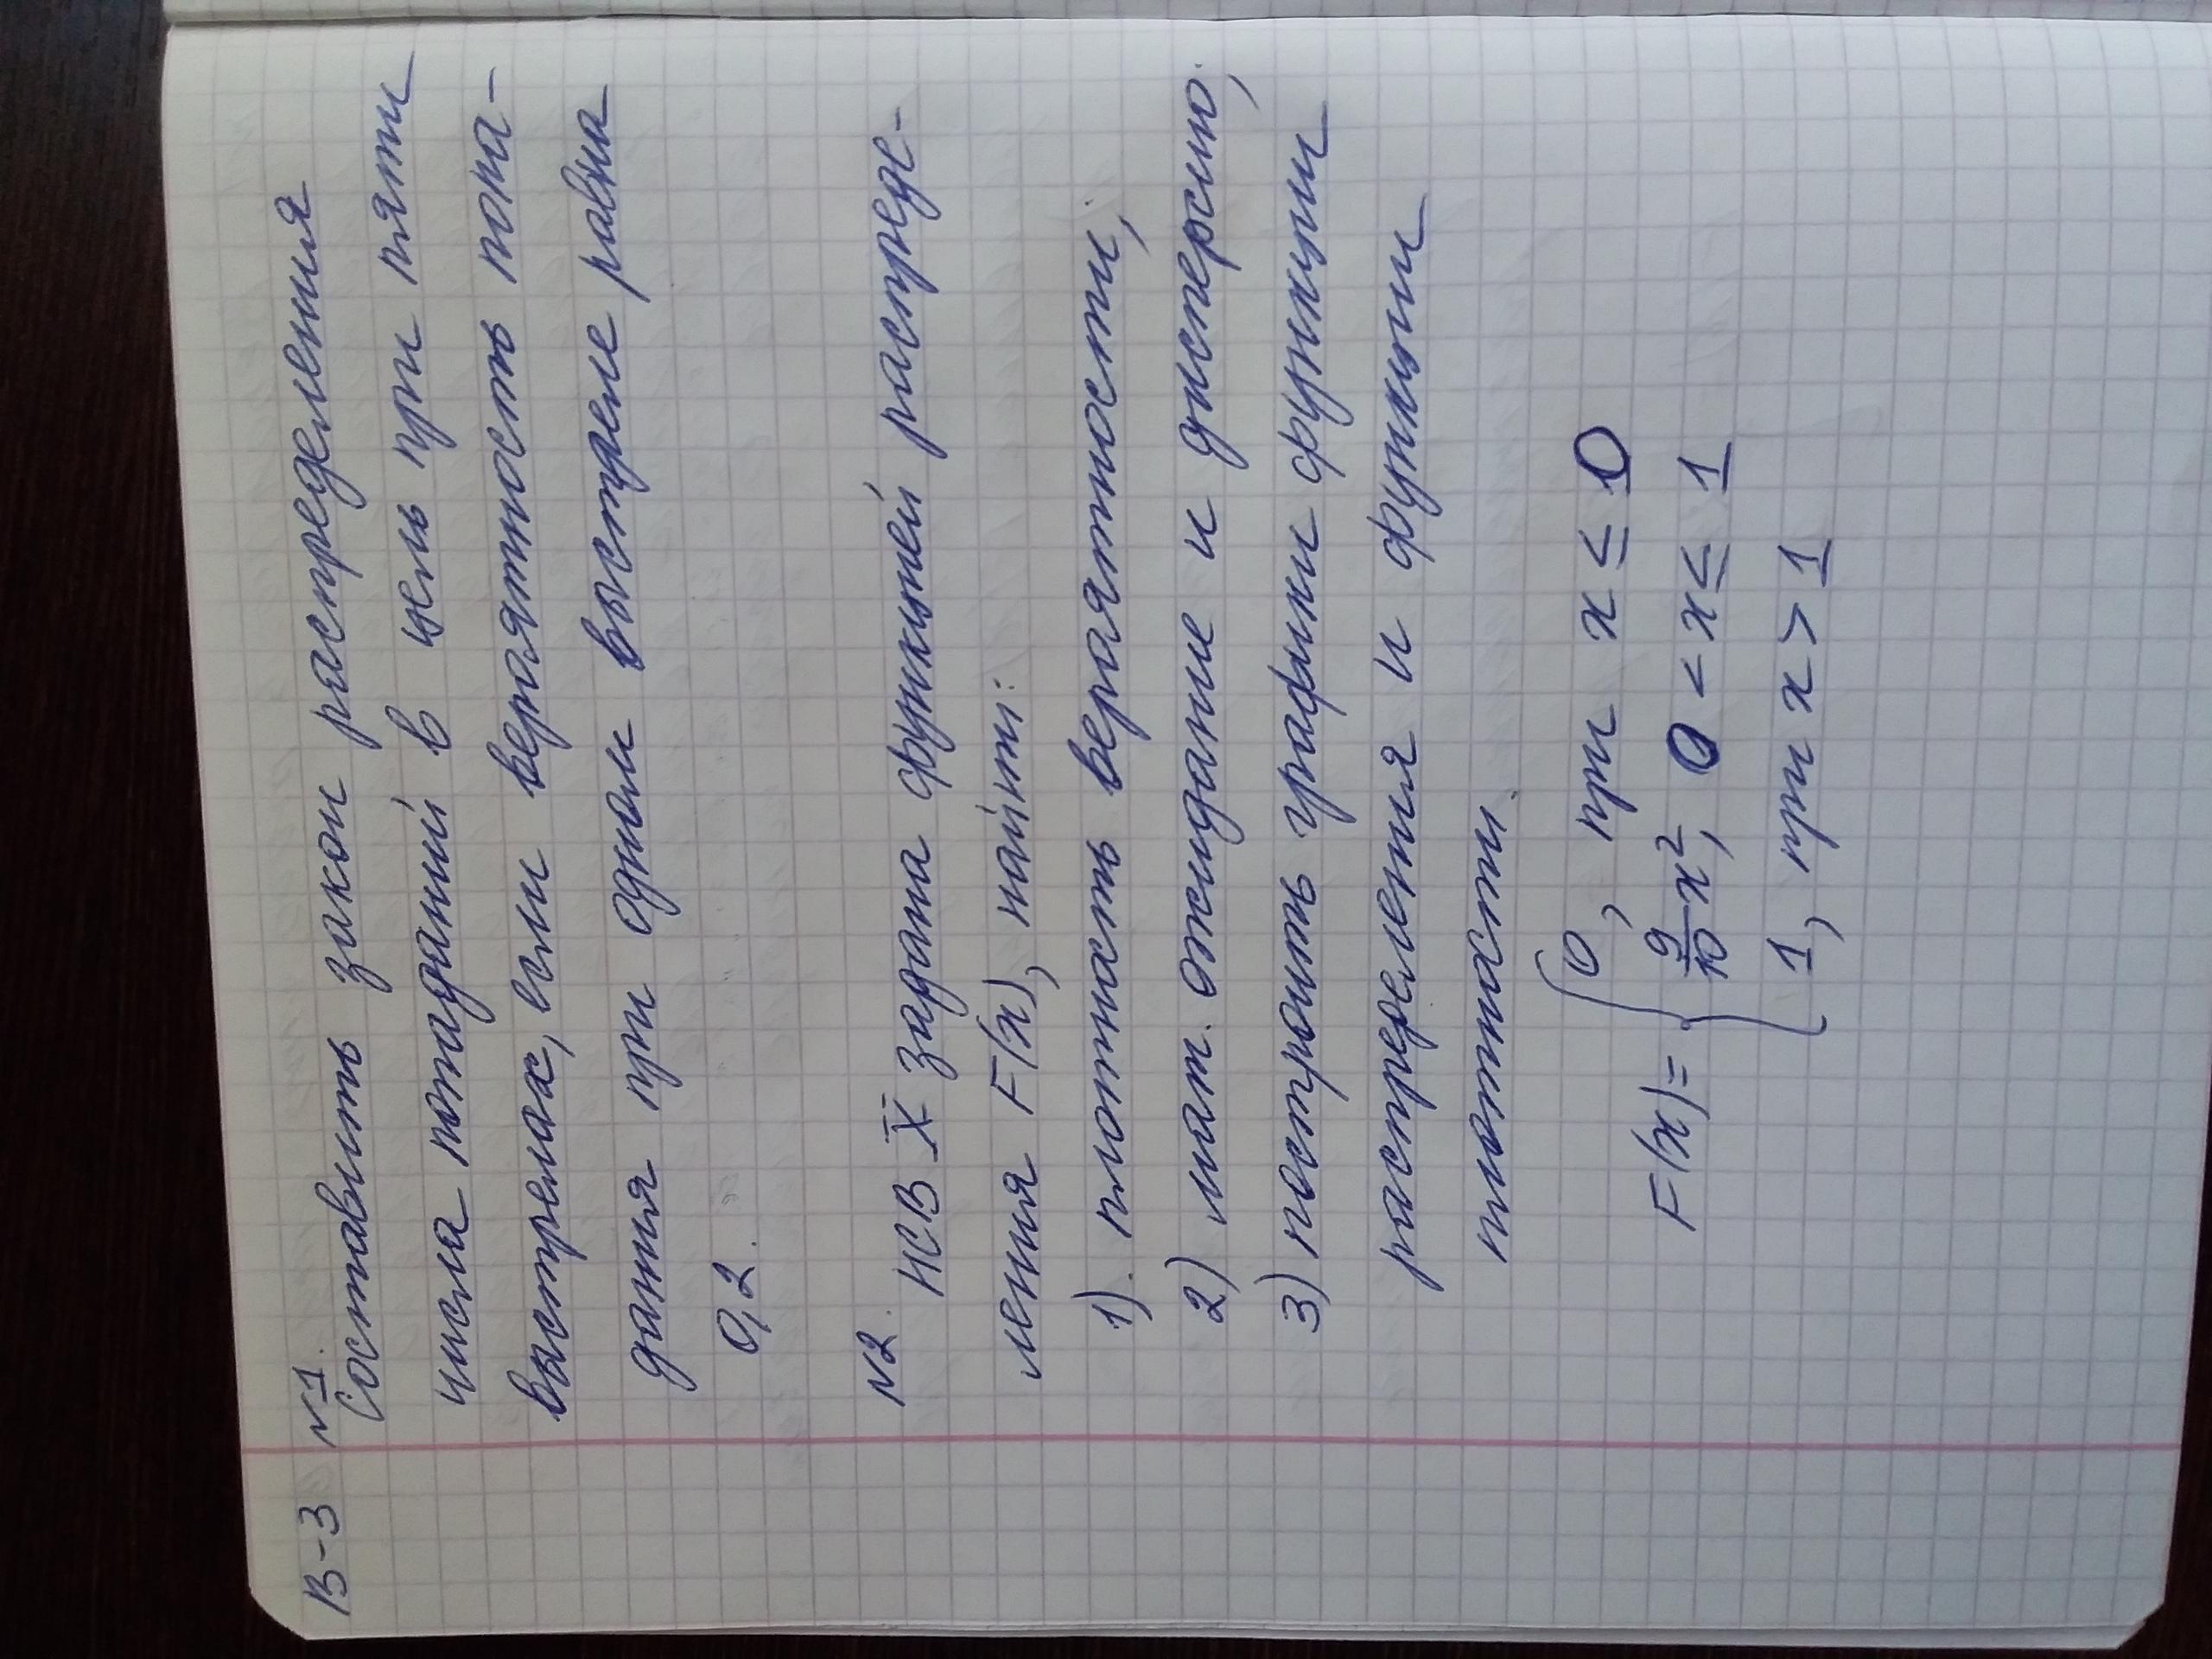 В-3 №1.
Составить закон распределения
числа попаданий в цель при пяти
выстрелах, если вероятность попа-
дания при одном выстреле равна
0,2.
№2. НСВ X задана функцией распреде-
ления F(x), найти:
1). плотность вероятности;
2) мат. ожидание и дисперсию;
3) построить графики функции
распределения и функции
плотности.
F(x) = { 0, при x ≤ 0
9/10 x², 0 < x ≤ 1
1, при x > 1